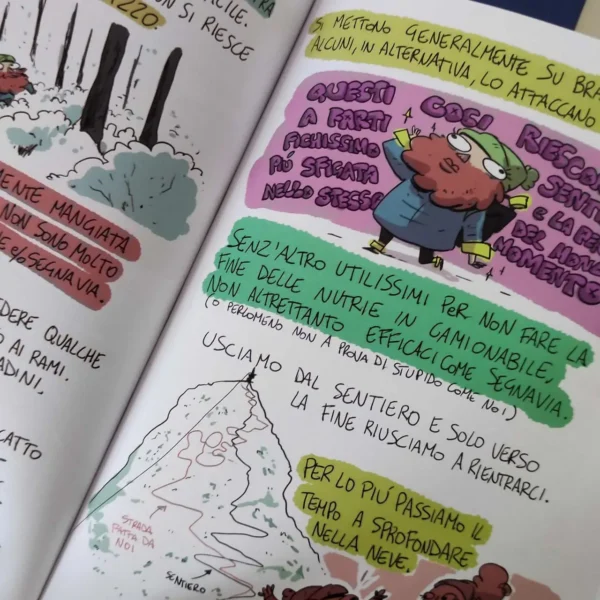 CILE.
IZZO.
ON SI RIESCE
MENTE MANGIATA
NON SONO MOLTO
SEGNAVIA.
DERE QUALCHE
AI RAMI.
ADINI,
CATTO
SI METTONO GENERALMENTE SU BRA
ALCUNI, IN ALTERNATIVA, LO ATTACCANO
QUESTI COSI RIESCON
A FARTI SENTI
FICHISSIMO E LA PER
PIÚ SFIGATA DEL MOND
NELLO STESSO MOMENTO
SENZ'ALTRO UTILISSIMI PER NON FARE LA
FINE DELLE NUTRIE IN CAMIONABILE,
NON ALTRETTANTO EFFICACI COME SEGNAVIA.
(O PERLOMENO NON A PROVA DI STUPIDO COME NOI)
USCIAMO DAL SENTIERO E SOLO VERSO
LA FINE RIUSCIAMO A RIENTRARCI.
STRADA
FATTA DA
NOI
SENTIERO
PER LO PIÚ PASSIAMO IL
TEMPO A SPROFONDARE
NELLA NEVE.